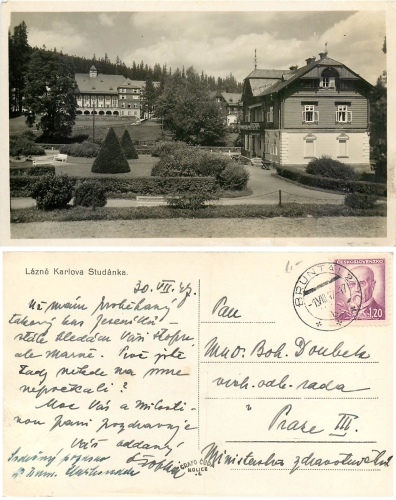 Lázně Karlova Studánka.
30. VII. 47.
Už mám proběhaný
takový kus Jeseníků –
stále hledám Vaší stopu,
ale marně. Proč jste
tady někde na mne
nepočkali?
Moc Vás a Milosti-
vou paní pozdravuje
Váš oddaný
Srdečný pozdrav
GRAFO ČUDA
HOLICE
BRUNTÁL
ČESKOSLOVENSKO
1.20
Pan
MUDr. Boh. Doubek
vrch. odb. rada
v Praze III.
Ministerstvo zdravotnictví